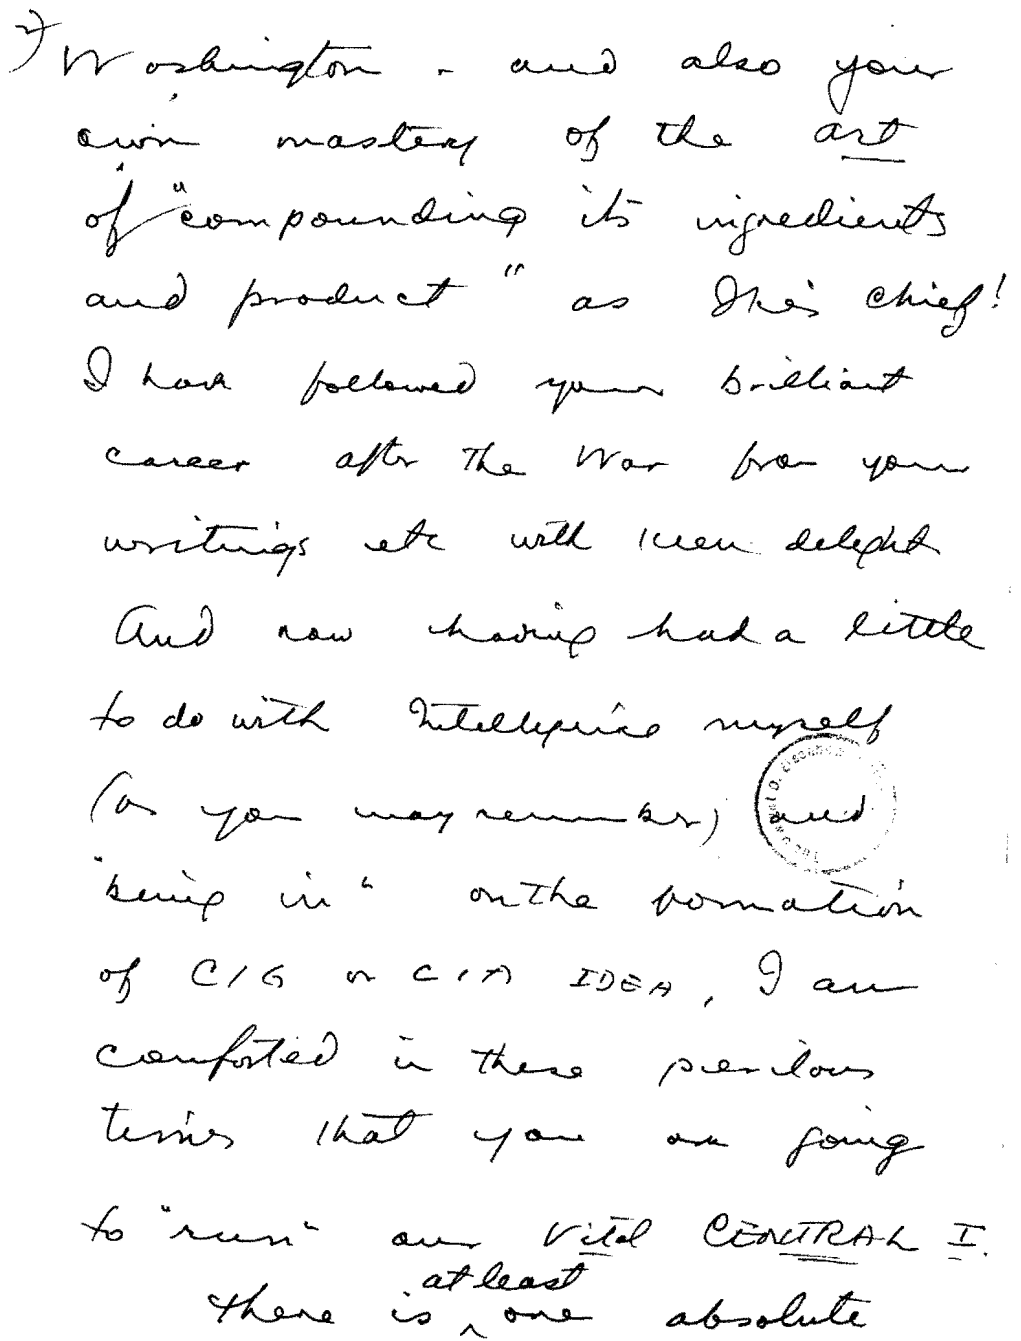 2)
Washington - and also your
own mastery of the art
of "compounding its ingredients
and product" as Ike's Chief!
I have followed your brilliant
career after the War from your
writings etc with keen delight
And now having had a little
to do with Intelligence myself
(as you may remember) and
"being in" on the formation
of CIG or CIA IDEA, I am
comforted in these perilous
times that you are going
to "run" our Vital CENTRAL I.
at least
there is ^ one absolute